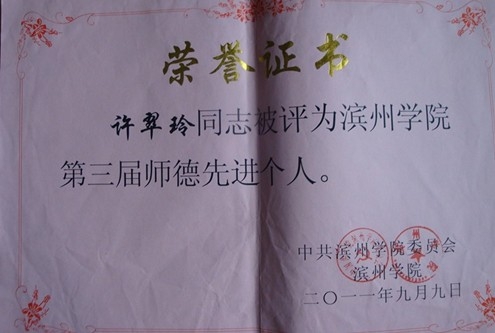 荣誉证书
许翠玲同志被评为滨州学院
第三届师德先进个人。
中共滨州学院委员会
滨州学院
二〇一一年九月九日